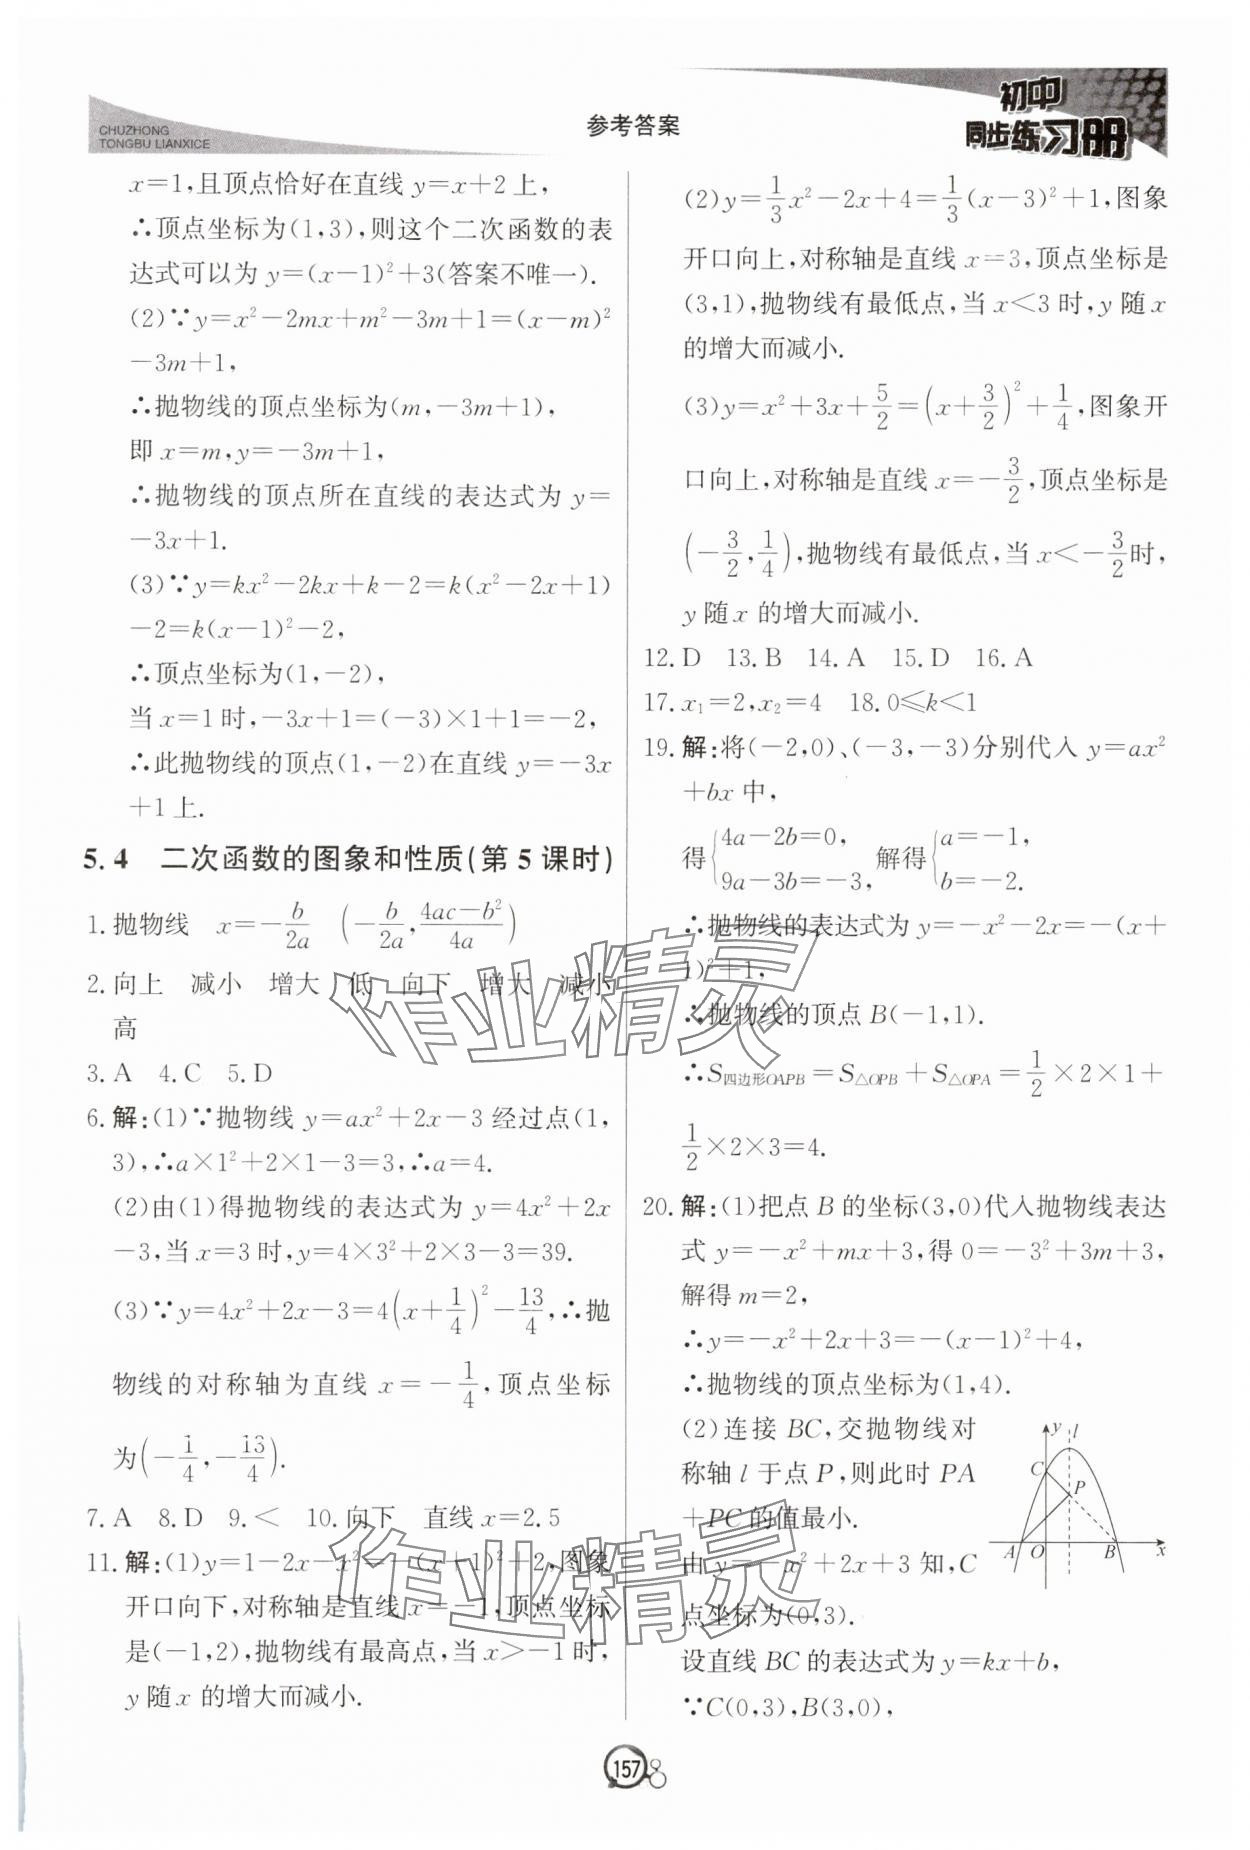 CHUZHONG
TONGBU LIANXICE
参考答案
初中
同步练习册
x=1,且顶点恰好在直线 y=x+2 上,
∴顶点坐标为(1,3),则这个二次函数的表
达式可以为 y=(x-1)²+3(答案不唯一).
(2)∵y=x²-2mx+m²-3m+1=(x-m)²
-3m+1,
∴抛物线的顶点坐标为(m,-3m+1),
即 x=m,y=-3m+1,
∴抛物线的顶点所在直线的表达式为 y=
-3x+1.
(3)∵y=kx²-2kx+k-2=k(x²-2x+1)
-2=k(x-1)²-2,
∴顶点坐标为(1,-2),
当 x=1 时,-3x+1=(-3)×1+1=-2,
∴此抛物线的顶点(1,-2)在直线 y=-3x
+1上.
5.4 二次函数的图象和性质(第 5 课时)
1. 抛物线 x=-b/2a (-b/2a, (4ac-b²)/4a)
2. 向上 减小 增大 低 向下 增大 减小
高
3. A 4. C 5. D
6. 解:(1)∵抛物线 y=ax²+2x-3 经过点(1,
3),∴a×1²+2×1-3=3,∴a=4.
(2)由(1)得抛物线的表达式为 y=4x²+2x
-3,当 x=3 时,y=4×3²+2×3-3=39.
(3)∵y=4x²+2x-3=4(x+1/4)²-13/4,∴抛
物线的对称轴为直线 x=-1/4,顶点坐标
为(-1/4,-13/4).
7. A 8. D 9. < 10. 向下 直线 x=2.5
11. 解:(1)y=1-2x-x²=-(x+1)²+2,图象
开口向下,对称轴是直线 x=-1,顶点坐标
是(-1,2),抛物线有最高点,当 x>-1 时,
y 随 x 的增大而减小.
(2)y=1/3x²-2x+4=1/3(x-3)²+1,图象
开口向上,对称轴是直线 x=3,顶点坐标是
(3,1),抛物线有最低点,当 x<3 时,y 随 x
的增大而减小.
(3)y=x²+3x+5/2=(x+3/2)²+1/4,图象开
口向上,对称轴是直线 x=-3/2,顶点坐标是
(-3/2,1/4),抛物线有最低点,当 x<-3/2时,
y 随 x 的增大而减小.
12. D 13. B 14. A 15. D 16. A
17. x₁=2,x₂=4 18. 0≤k<1
19. 解:将(-2,0)、(-3,-3)分别代入 y=ax²
+bx 中,
得{4a-2b=0, 9a-3b=-3, 解得{a=-1, b=-2.
∴抛物线的表达式为 y=-x²-2x=-(x+
1)²+1,
∴抛物线的顶点 B(-1,1).
∴S四边形OAPB=S△OPB+S△OPA=1/2×2×1+
1/2×2×3=4.
20. 解:(1)把点 B 的坐标(3,0)代入抛物线表达
式 y=-x²+mx+3,得 0=-3²+3m+3,
解得 m=2,
∴y=-x²+2x+3=-(x-1)²+4,
∴抛物线的顶点坐标为(1,4).
(2)连接 BC,交抛物线对
称轴 l 于点 P,则此时 PA
+PC 的值最小.
由 y=-x²+2x+3 知,C
点坐标为(0,3).
设直线 BC 的表达式为 y=kx+b,
∵C(0,3),B(3,0),
y l
C
P
A O B x
作业精灵
作业精灵
157